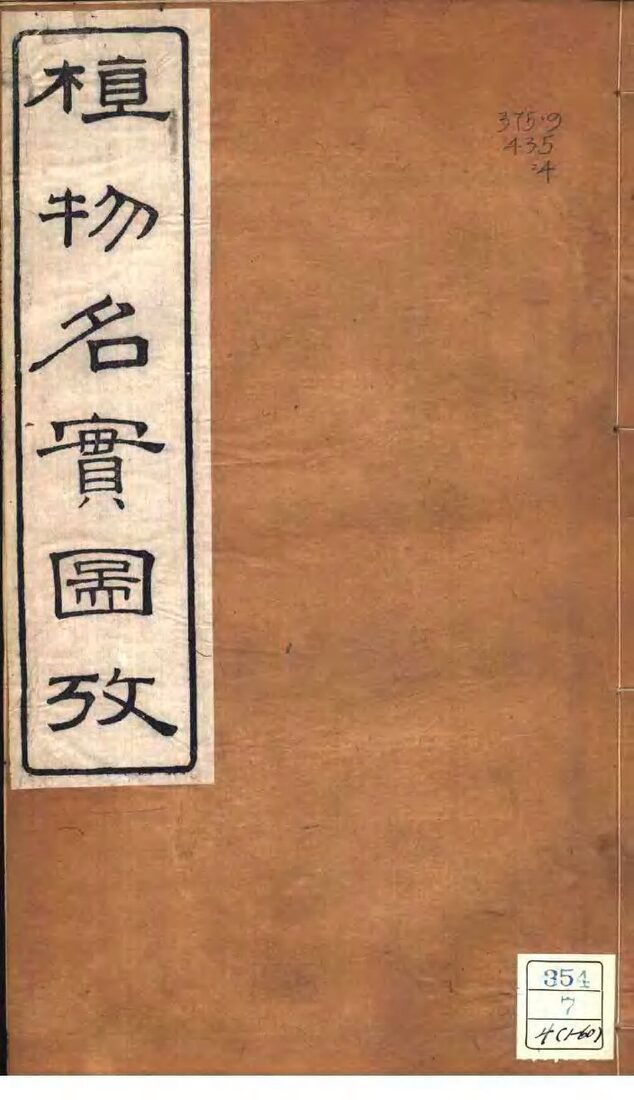 植物名實圖攷
375.9
435
:4
354
7
4(1-60)